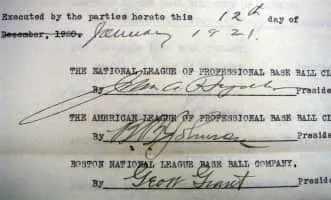 Executed by the parties hereto this 12th day of
December, 1920. January 1921.
THE NATIONAL LEAGUE OF PROFESSIONAL BASE BALL CL
By John A Heydler Preside
THE AMERICAN LEAGUE OF PROFESSIONAL BASE BALL CL
By B B Johnson Preside
BOSTON NATIONAL LEAGUE BASE BALL COMPANY,
By Geo W Grant Preside